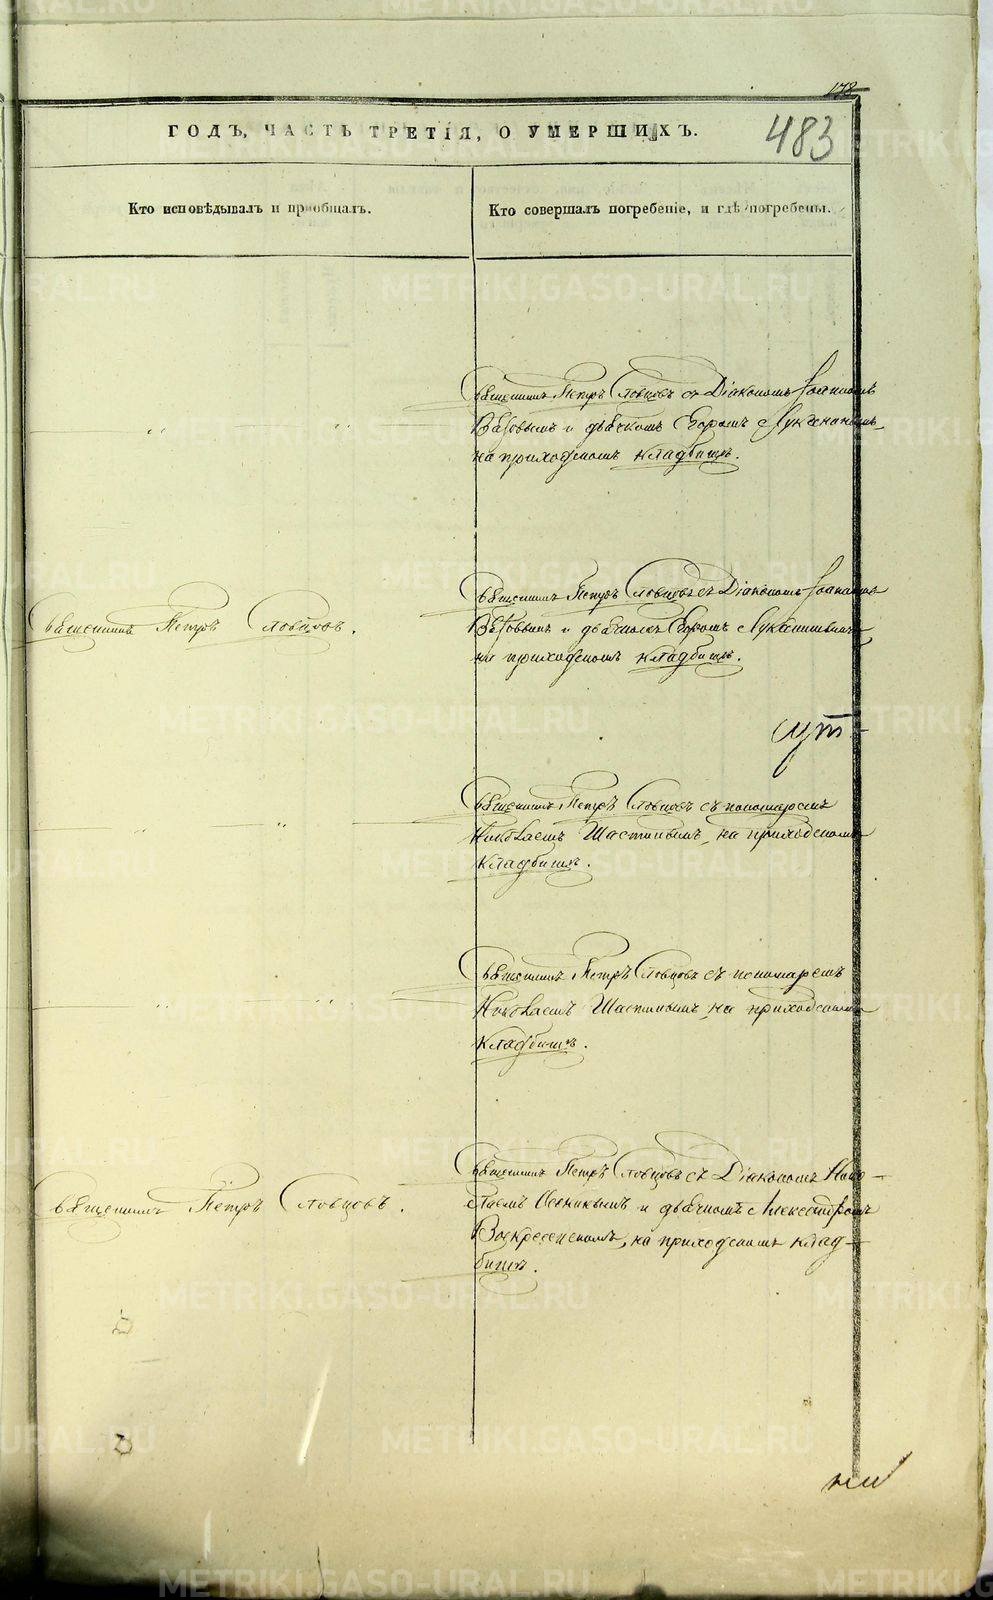 178
ГОДЪ, ЧАСТЬ ТРЕТІЯ, О УМЕРШИХЪ.
483
Кто исповѣдывалъ и пріобщалъ.
Кто совершалъ погребеніе, и гдѣ погребены.
Священникъ Петръ Словцовъ съ Діакономъ Іоанномъ
и дьячкомъ Егоромъ
на приходскомъ кладбищѣ.
Священникъ Петръ Словцовъ.
Священникъ Петръ Словцовъ съ Діакономъ Іоанномъ
и дьячкомъ Егоромъ
на приходскомъ кладбищѣ.
Священникъ Петръ Словцовъ съ пономаремъ
Николаемъ Шастинымъ, на приходскомъ
кладбищѣ.
Священникъ Петръ Словцовъ съ пономаремъ
Николаемъ Шастинымъ, на приходскомъ
кладбищѣ.
Священникъ Петръ Словцовъ.
Священникъ Петръ Словцовъ съ Діакономъ Нико-
лаемъ и дьячкомъ Александромъ
Воскресенскимъ, на приходскомъ клад-
бищѣ.
METRIKI.GASO-URAL.RU